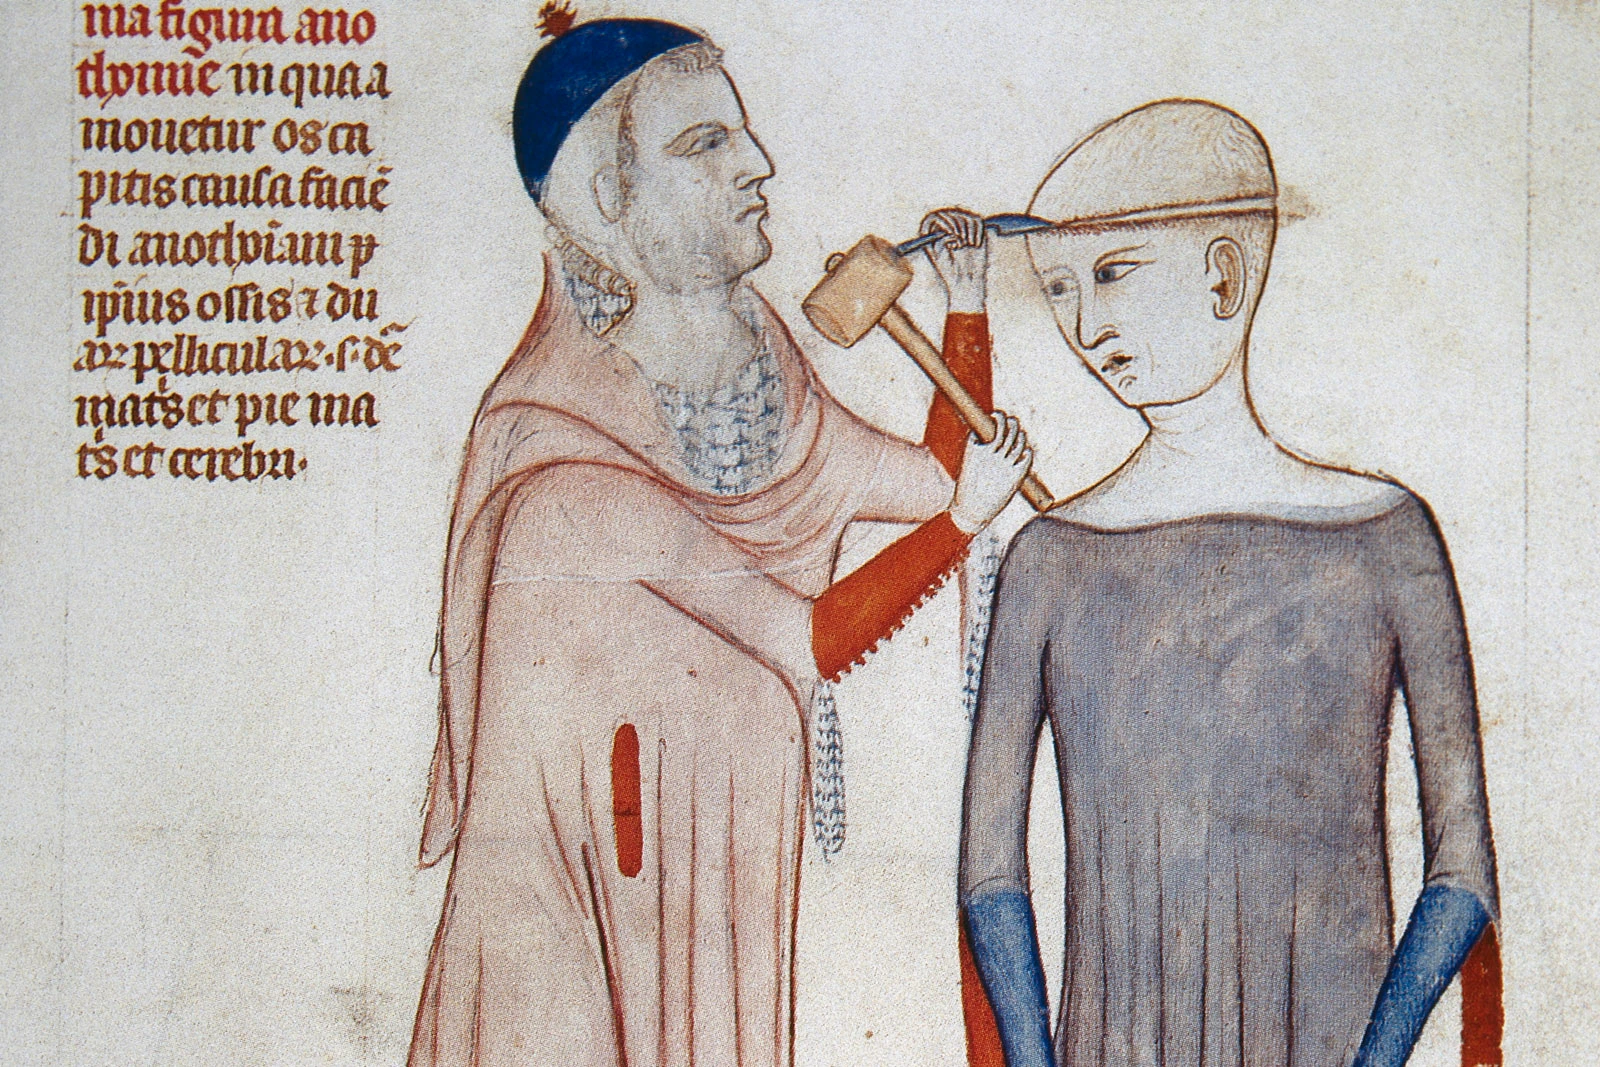 ma figura ano
thomie in qua a
mouetur os ca
pitis causa faciē
di anothoīam p
ip̄ius ossis ⁊ du
aꝝ pellicularꝝ · s · de
matꝭ et pie ma
tꝭ et cerebri ·